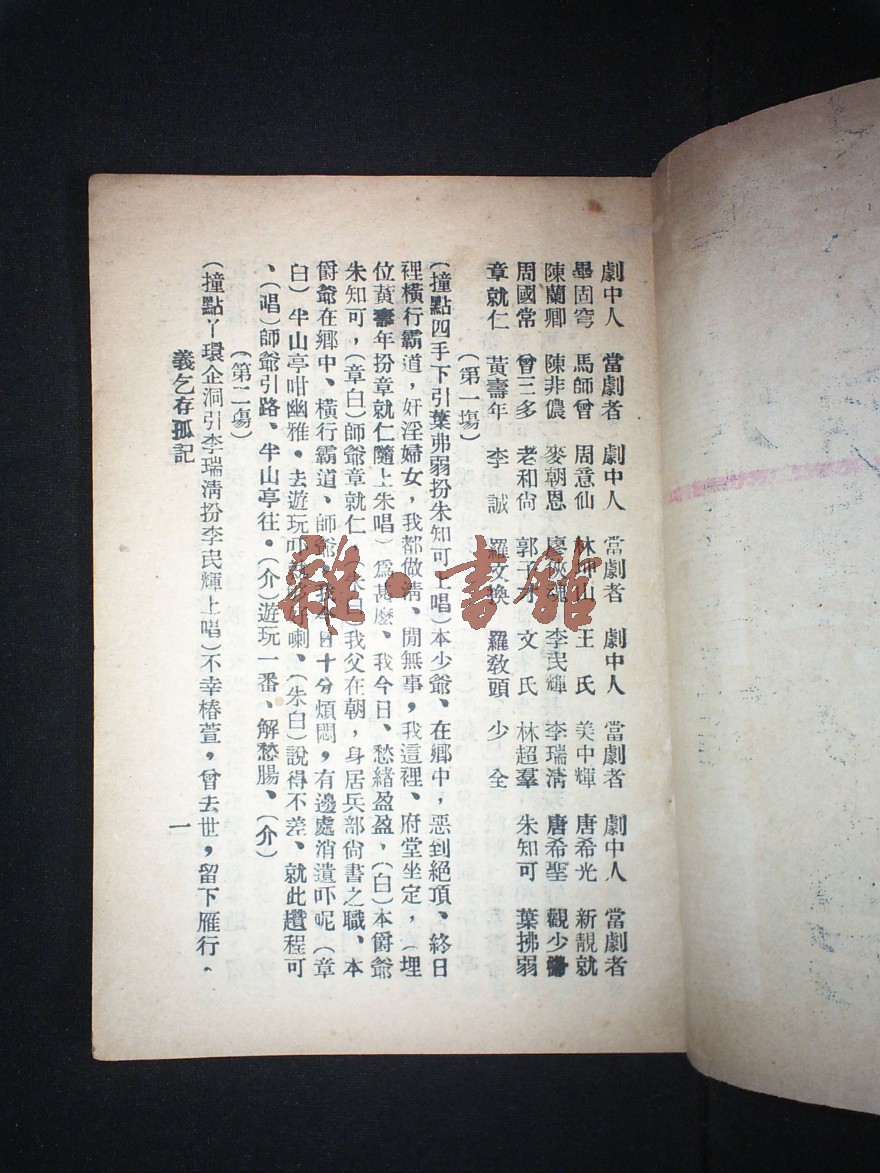 劇中人 當劇者 劇中人 當劇者 劇中人 當劇者 劇中人 當劇者
畢固穹 馬師曾 周意仙 林坤山 王氏 美中輝 唐希光 新靚就
陳蘭卿 陳非儂 麥朝恩 廖俠魂 李民輝 李瑞清 唐希聖 觀少
周國常 曾三多 老和尙 郭子 文氏 林超羣 朱知可 葉拂弱
章就仁 黃壽年 李誠 羅文換 羅敎頭 少全
(第一塲)
(撞點四手下引葉弗弱扮朱知可上唱)本少爺、在鄉中，惡到絕頂、終日
裡橫行霸道，奸淫婦女，我都做淸、閒無事，我這裡、府堂坐定，(埋
位黃壽年扮章就仁隨上朱唱)爲甚麽、我今日、愁緖盈盈，(白)本爵爺
朱知可，(章白)師爺章就仁、(朱白)我父在朝，身居兵部尙書之職、本
爵爺在鄉中、橫行霸道、師爺，我今日十分煩悶，有邊處消遣吓呢(章
白)半山亭咁幽雅。去遊玩吓喇、(朱白)說得不差、就此趲程可
、(唱)師爺引路、半山亭往。(介)遊玩一番、解愁腸、(介)
(第二塲)
(撞點丫環企洞引李瑞淸扮李民輝上唱)不幸椿萱，曾去世，留下雁行。
義乞存孤記
一
雜·書館